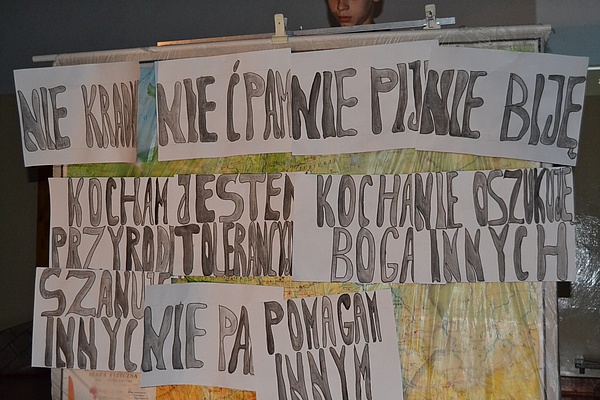 NIE
NIE ĆPAM
NIE PIJ
NIE BIJĘ
KOCHAM
PRZYROD
JESTEM
TOLERANCYJ
KOCHA
BOGA
NIE OSZUKUJĘ
INNYCH
SZANUJ
INNYC
NIE PA
POMAGAM
INNYM